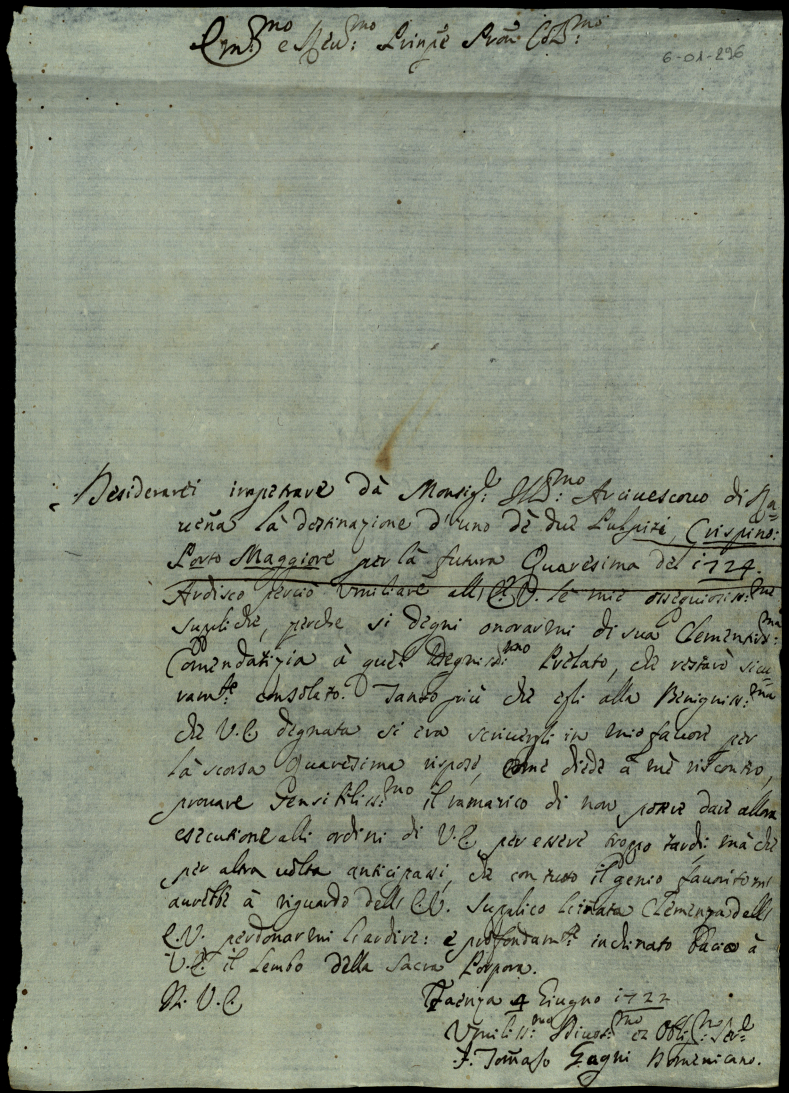 Em.mo e Reu.mo Prinpe Pron Col.mo
6-01-296
Desiderarei impetrare dà Monsig.r Ill.mo Arciuescouo di Ra=
ueña la destinazione d'uno dè due Pulpiti, Crispino:
Porto Maggiore per la futura Quaresima del 1724.
Ardisco perciò Vmiliare all'E.V. le mie ossequiosiss.me
suppliche, perche si degni onorarmi di sua Clementiss.ma
Comendatizia à quel Degniss.mo Prelato, che restarò sicu=
ram.te consolato. Tanto più che egli alla Benigniss.ma
che V.E. degnata si era scriuergli in mio fauore per
la scorsa Quaresima rispose, come diede à mè riscontro,
prouare sensibiliss.mo il ramarico di non poter dare allora
esecutione alli ordini di V.E. per essere troppo tardi: mà che
per altra uolta anticipassi, che con tutto il genio fauoritomi
aurebbe à riguardo dell'E.V. Supplico la Clemenza dell'
E.V. perdonarmi l'ardire: e profondam.te inclinato bacio à
V.E. il Lembo della Sacra Porpora.
Di V.E. Faenza 4 Giugno 1722
Vmiliss.mo Diuot.mo ed Obblig.mo Ser.e
F. Tomaso Gagni Domenicano.